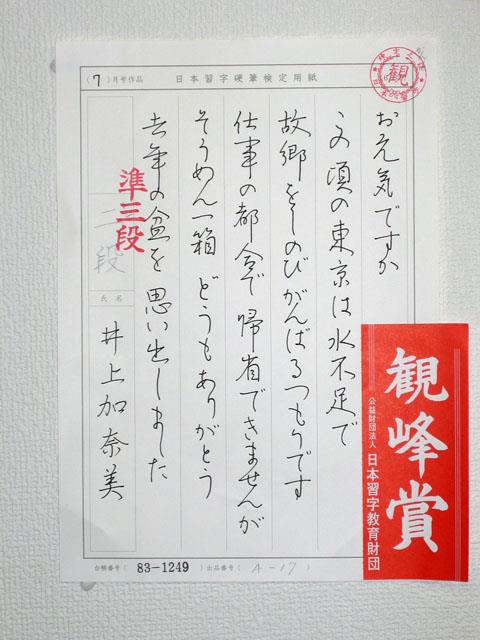 (7)月号作品
日本習字硬筆検定用紙
観
お元気ですか
この頃の東京は水不足で
故郷をしのびがんばるつもりです
仕事の都合で帰省できませんが
そうめん一箱 どうもありがとう
去年の盆を思い出しました
準三段
二段
氏名
井上加奈美
台帳番号(83-1249)出品番号(A-17)
観峰賞
公益財団法人
日本習字教育財団